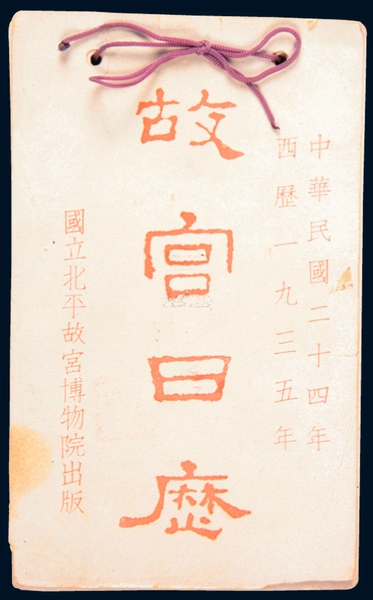 中華民國二十四年
西歷一九三五年
故宮日歷
國立北平故宮博物院出版